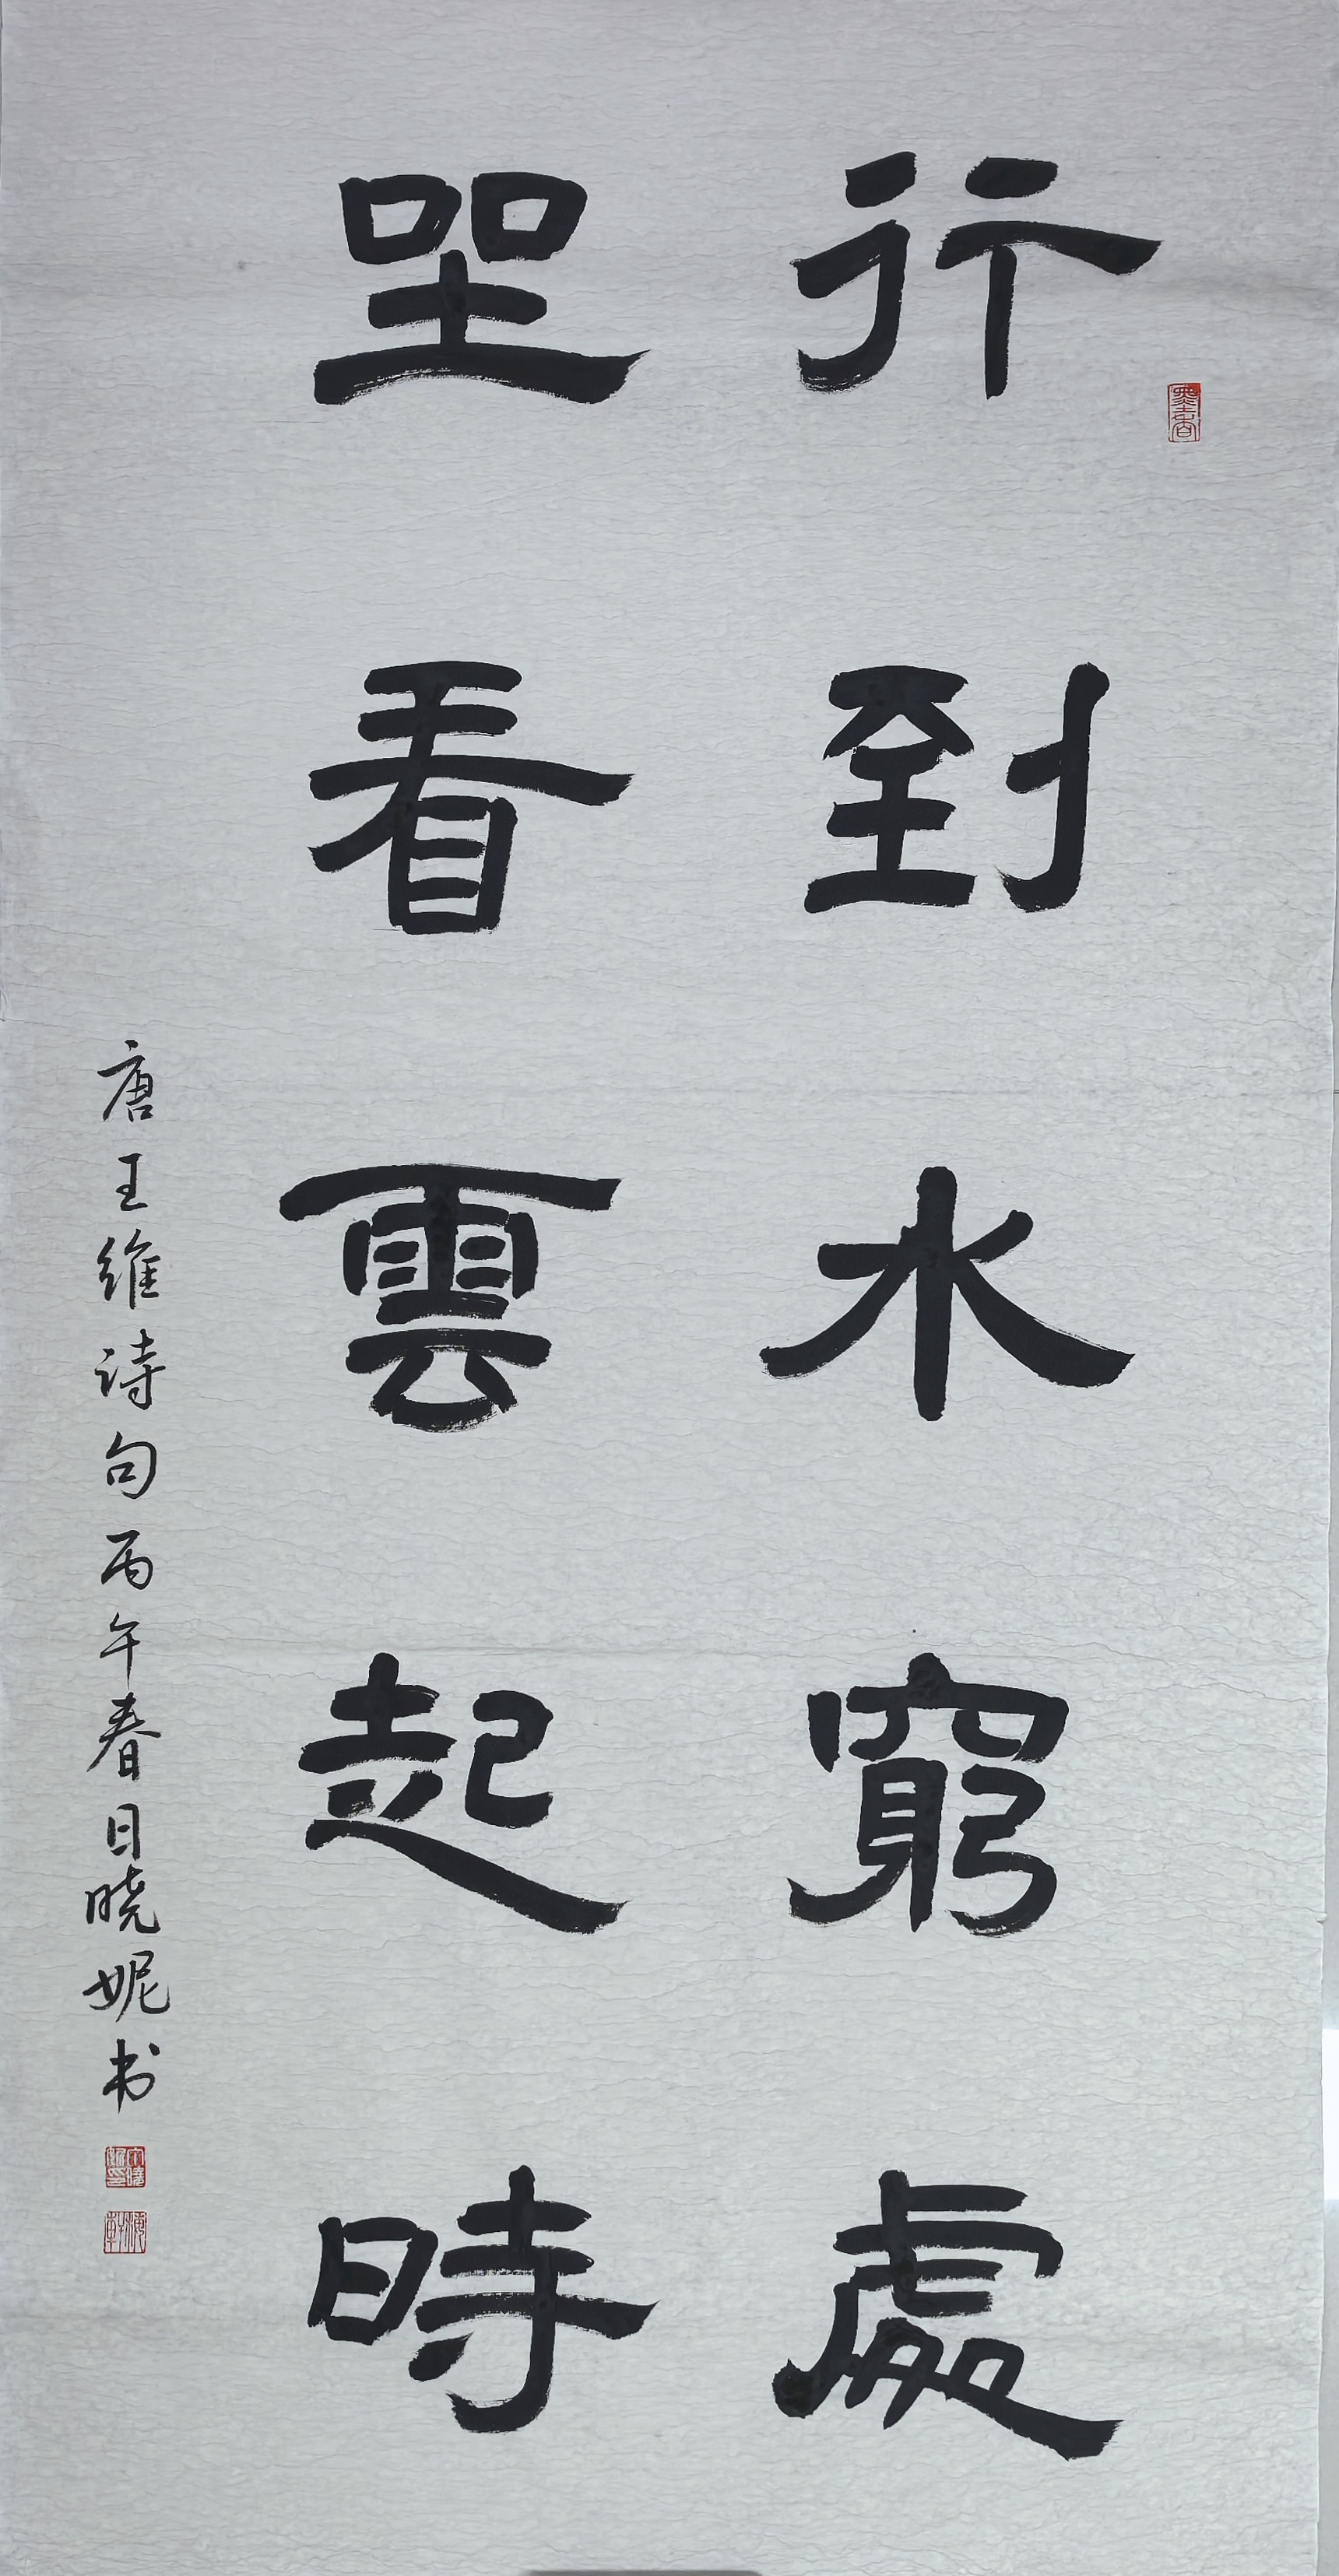 行到水窮處
坐看雲起時
唐王維诗句丙午春日晓妮书
墨香